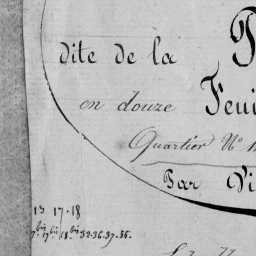 dite de la
en douze Feui
Quartier N°
Par Vi
13 17.18
17.bis 18.bis 32.36.37.38.